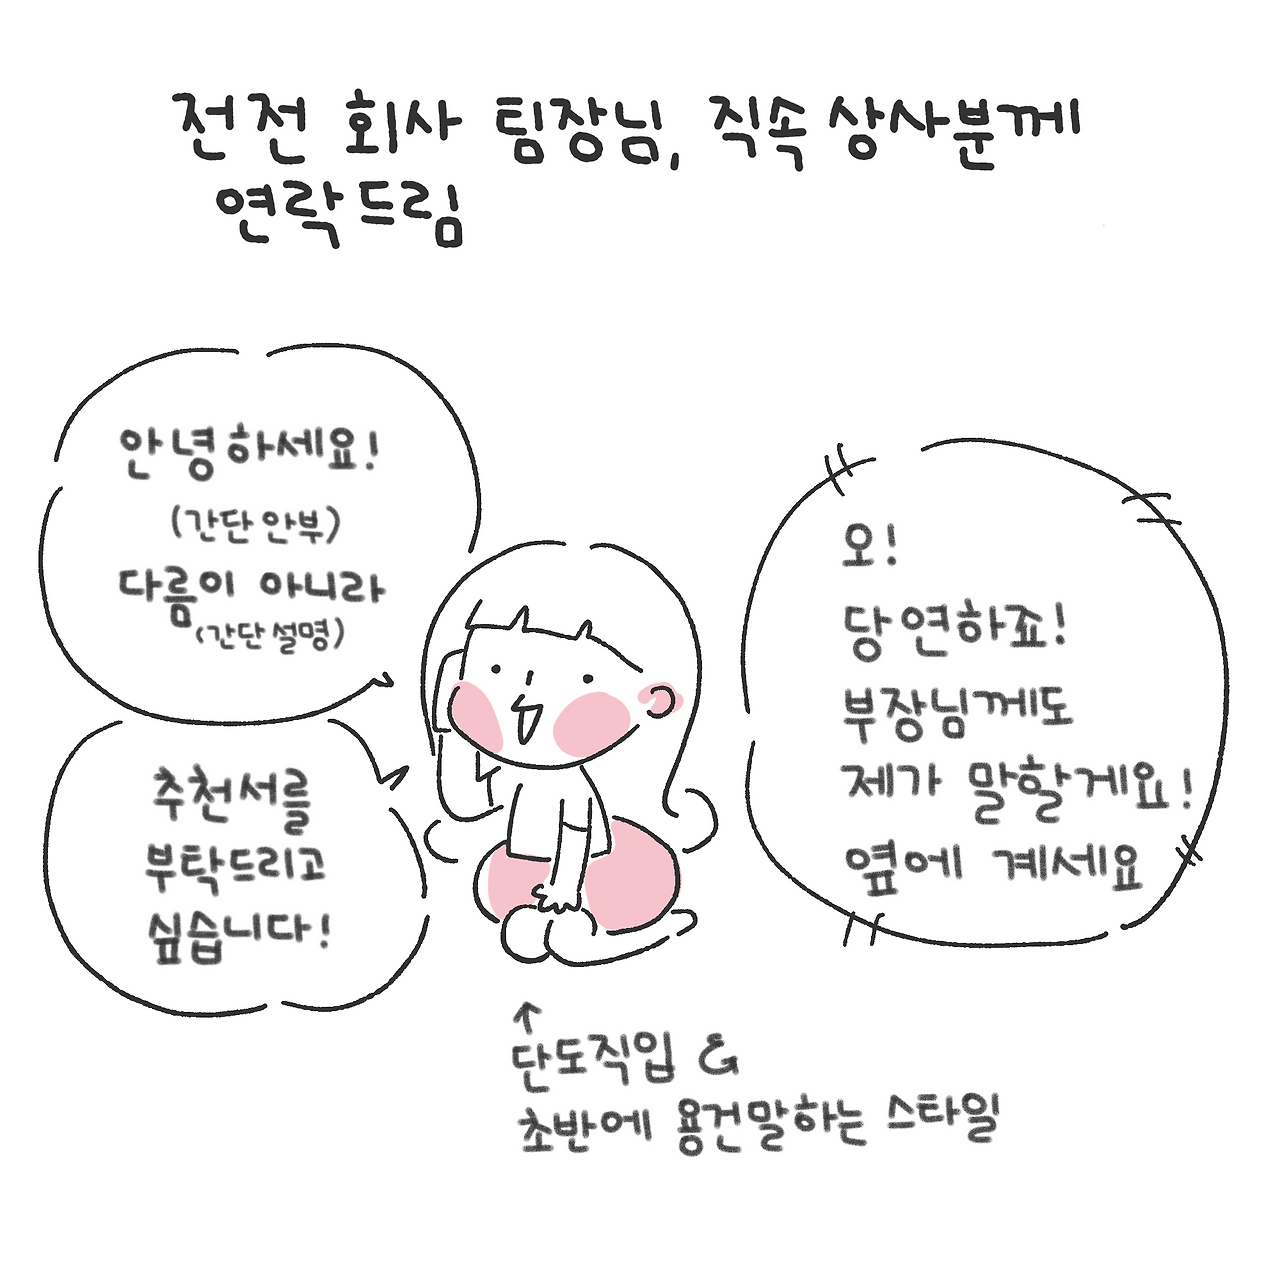 전전 회사 팀장님, 직속상사분께
연락드림
안녕하세요!
(간단 안부)
다름이 아니라
(간단 설명)
추천서를
부탁드리고
싶습니다!
오!
당연하죠!
부장님께도
제가 말할게요!
옆에 계세요
↑
단도직입 &
초반에 용건말하는 스타일